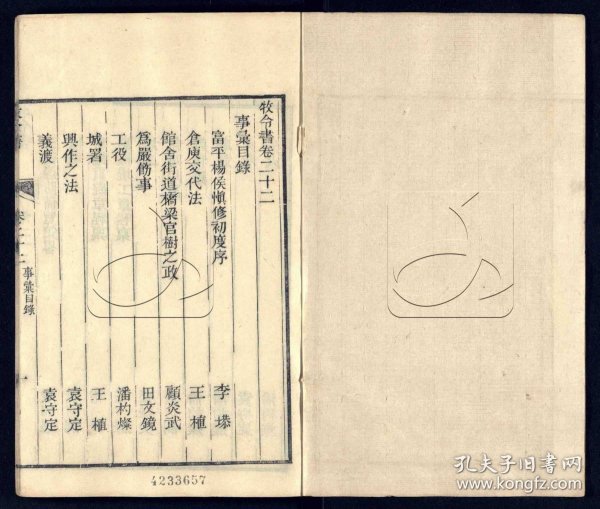 牧令書卷二十二
事彙目錄
富平楊侯愼修初度序 李塨
倉庾交代法 王植
館舍街道橋梁官樹之政 顧炎武
爲嚴飭事 田文鏡
工役 潘杓燦
城署 王植
興作之法 袁守定
義渡 袁守定
卷二十二 事彙目錄 一
4233657
孔夫子旧書网
www.kongfz.com